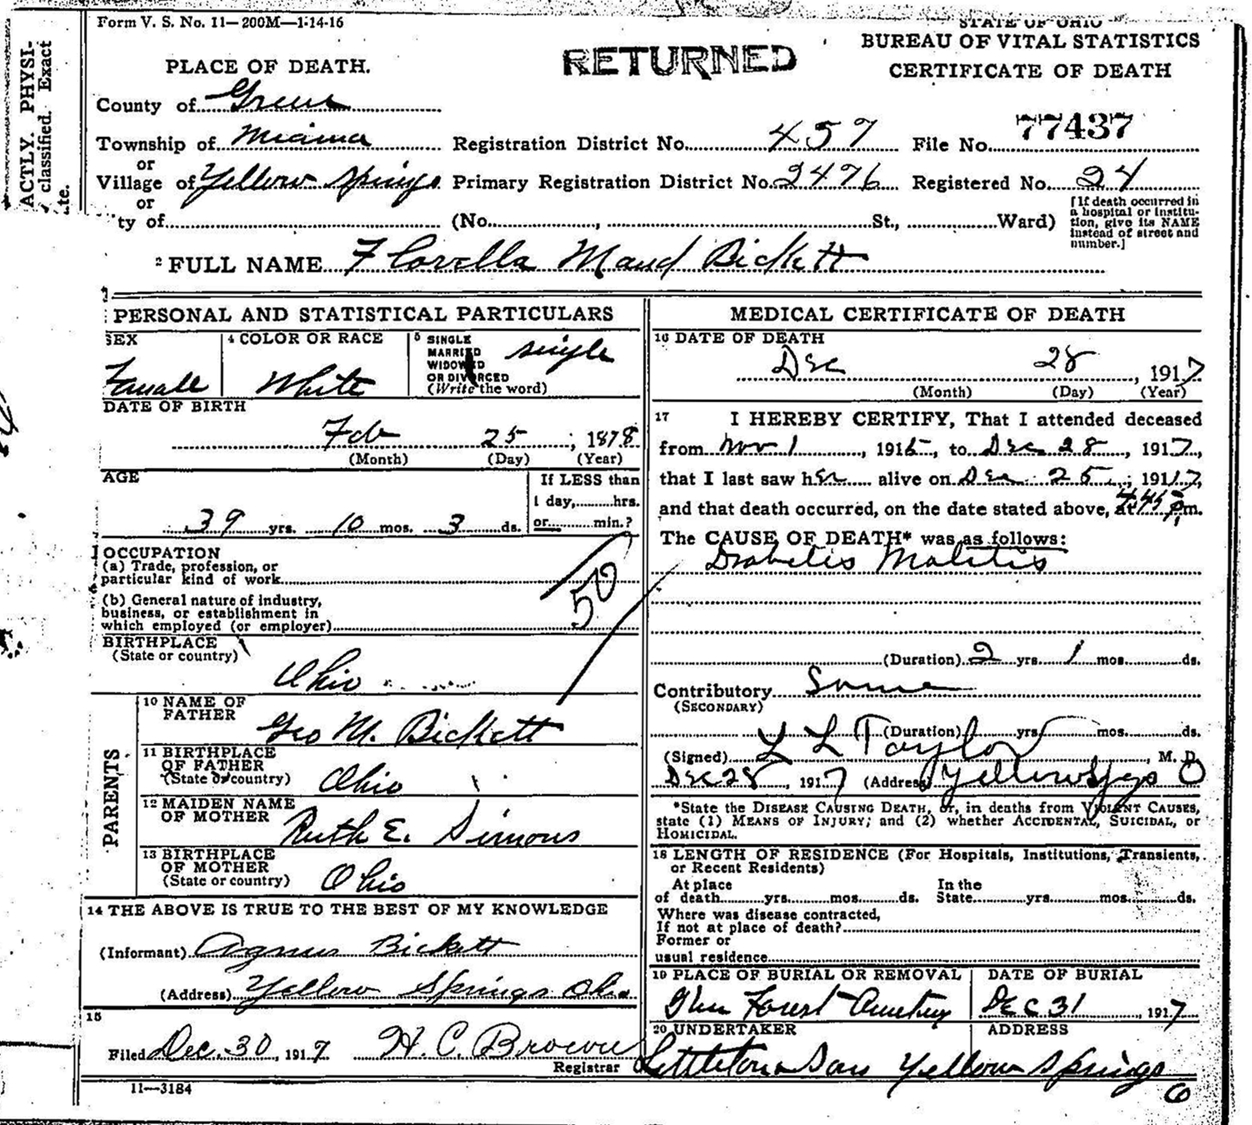 Form V. S. No. 11—200M—1-14-16
ACTLY. PHYSI-
classified. Exact
te.
STATE OF OHIO
BUREAU OF VITAL STATISTICS
CERTIFICATE OF DEATH
RETURNED
PLACE OF DEATH.
County of Greene
Township of Miami Registration District No. 457 File No. 77437
or
Village of Yellow Springs Primary Registration District No. 2476 Registered No. 24
or
ty of (No. , St., Ward) [If death occurred in a hospital or institu-
tion, give its NAME instead of street and number.]
2 FULL NAME Florella Maud Bickett
PERSONAL AND STATISTICAL PARTICULARS
SEX 4 COLOR OR RACE 5 SINGLE MARRIED WIDOWED OR DIVORCED (Write the word) single
Female White
DATE OF BIRTH
Feb 25 , 1878
(Month) (Day) (Year)
AGE If LESS than
1 day, hrs.
39 yrs. 10 mos. 3 ds. or min.?
OCCUPATION
(a) Trade, profession, or
particular kind of work
50
(b) General nature of industry,
business, or establishment in
which employed (or employer)
BIRTHPLACE
(State or country)
Ohio
PARENTS
10 NAME OF FATHER Geo M. Bickett
11 BIRTHPLACE OF FATHER (State or country) Ohio
12 MAIDEN NAME OF MOTHER Ruth E. Simons
13 BIRTHPLACE OF MOTHER (State or country) Ohio
14 THE ABOVE IS TRUE TO THE BEST OF MY KNOWLEDGE
(Informant) Agnus Bickett
(Address) Yellow Springs Ohio
15
Filed Dec. 30 , 1917 H. C. Brown
Registrar
11—3184
MEDICAL CERTIFICATE OF DEATH
16 DATE OF DEATH
Dec 28 , 1917
(Month) (Day) (Year)
17 I HEREBY CERTIFY, That I attended deceased
from Nov 1 , 1915, to Dec 28 , 1917,
that I last saw her alive on Dec 25 , 1917,
and that death occurred, on the date stated above, at m.
The CAUSE OF DEATH* was as follows:
Diabetis Malitis
(Duration) 2 yrs. 1 mos. ds.
Contributory Same
(SECONDARY)
(Duration) yrs. mos. ds.
(Signed) L L Taylor , M. D.
Dec 28 , 1917 (Address) Yellow Spgs O
*State the DISEASE CAUSING DEATH, or, in deaths from VIOLENT CAUSES,
state (1) MEANS OF INJURY; and (2) whether ACCIDENTAL, SUICIDAL, or
HOMICIDAL.
18 LENGTH OF RESIDENCE (For Hospitals, Institutions, Transients,
or Recent Residents)
At place In the
of death yrs. mos. ds. State yrs. mos. ds.
Where was disease contracted,
If not at place of death?
Former or
usual residence
19 PLACE OF BURIAL OR REMOVAL DATE OF BURIAL
Glen Forest Cemetery DEC 31 , 1917
20 UNDERTAKER ADDRESS
Littleton & Son Yellow Springs
O